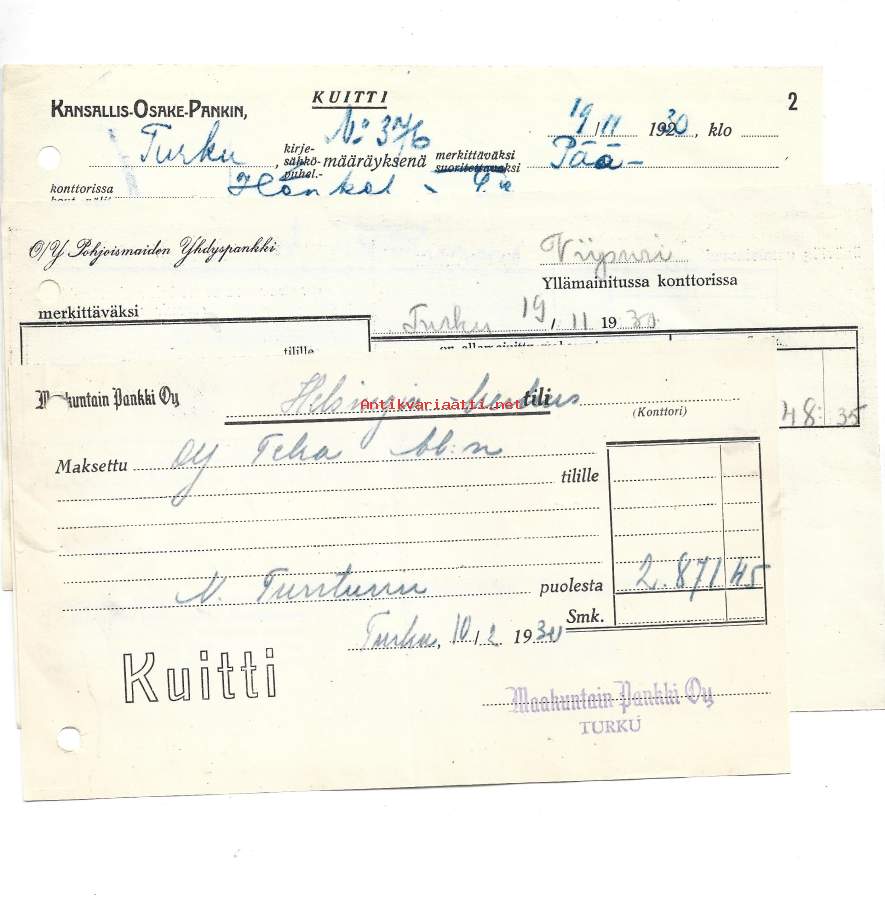 KUITTI
2
KANSALLIS-OSAKE-PANKIN,
19/11 1930, klo
Turku, kirje- sähkö- puhel.- määräyksenä merkittäväksi suoritettavaksi Pää-
No 376
konttorissa
O/Y Pohjoismaiden Yhdyspankki
Viipuri
Yllämainitussa konttorissa
merkittäväksi
Turku 19/11 1930
tilille
48:35
Maakuntain Pankki Oy
Helsingin tili
(Konttori)
Antikvariaatti.net
Maksettu OY Teka
tilille
puolesta 2.871 45
Smk.
Turku, 10/2 1930
Kuitti
Maakuntain Pankki Oy
TURKU